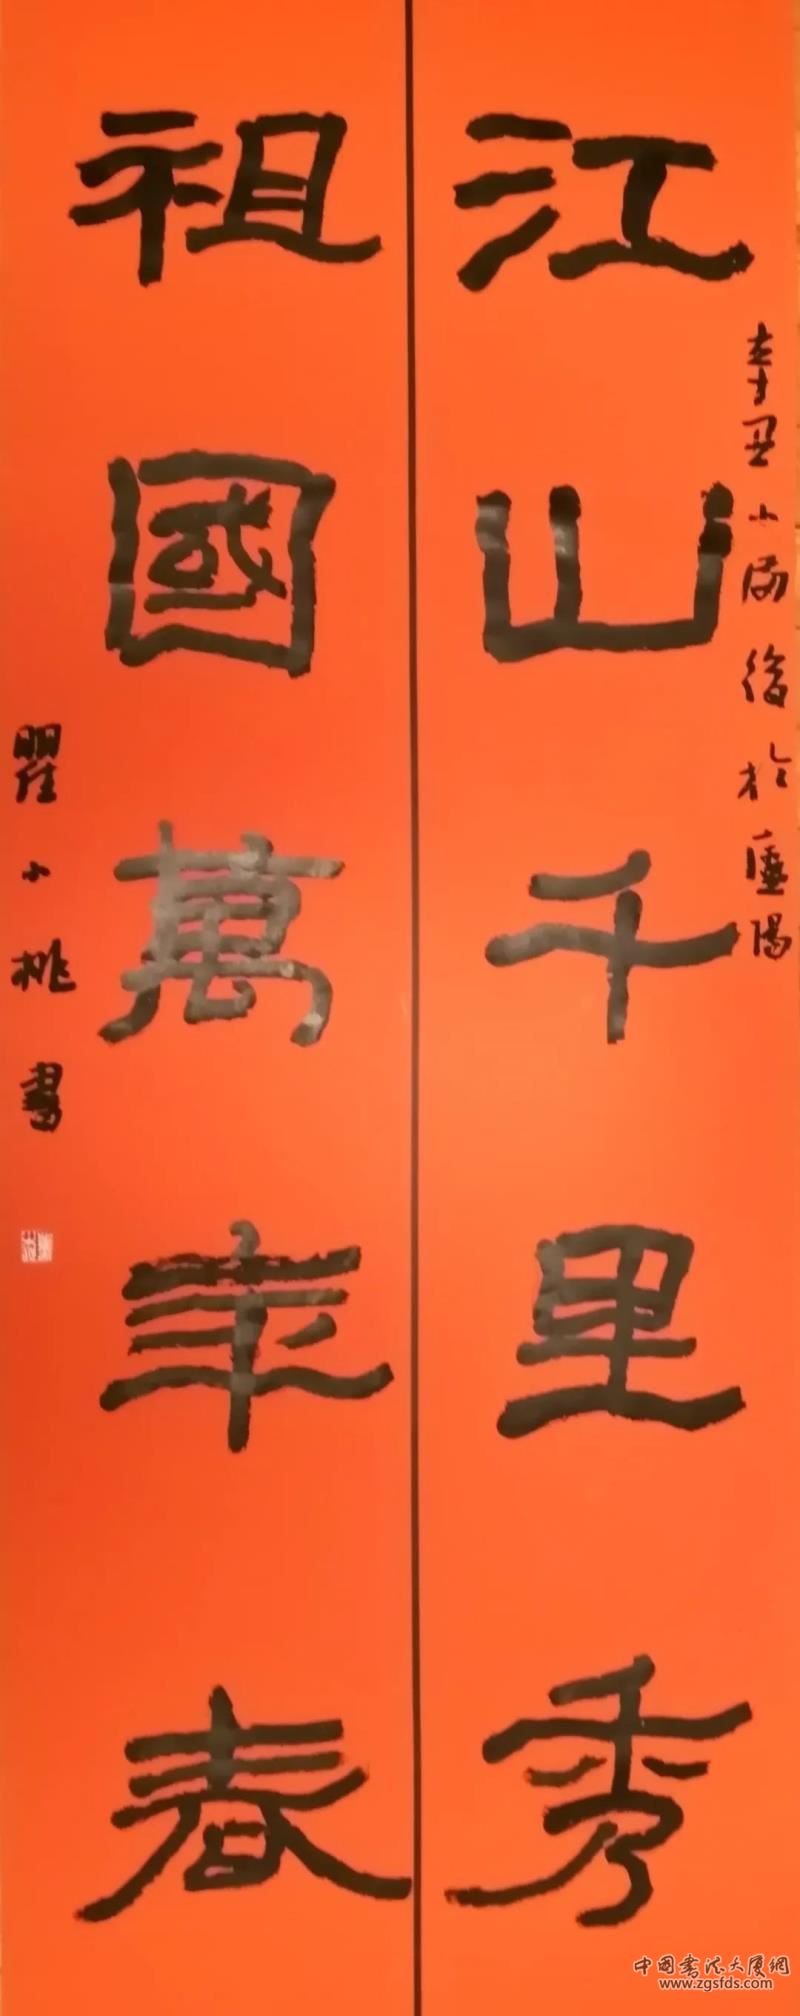 江山千里秀
辛丑小满後於廬陽
祖國萬年春
瞿小桃書
中国书法大厦網
www.zgsfds.com